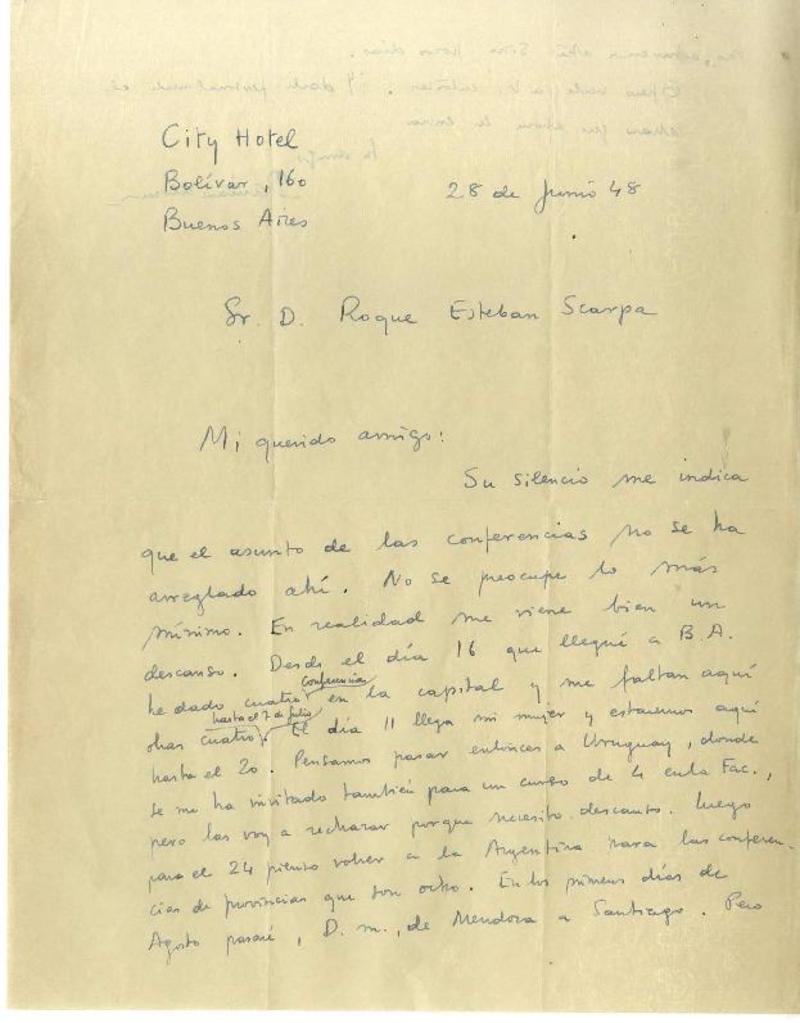 City Hotel
Bolívar, 160
Buenos Aires
28 de Junio 48
Sr. D. Roque Esteban Scarpa
Mi querido amigo:
Su silencio me indica
que el asunto de las conferencias no se ha
arreglado ahí. No se preocupe lo más
mínimo. En realidad me viene bien un
descanso. Desde el día 16 que llegué a B.A.
he dado cuatro conferencias en la capital y me faltan aquí
otras cuatro hasta el 7 de julio. El día 11 llega mi mujer y estaremos aquí
hasta el 20. Pensamos pasar entonces a Uruguay, donde
se me ha invitado también para un curso de 4 en la Fac.,
pero las voy a rechazar porque necesito descanso. Luego
para el 24 pienso volver a la Argentina para las conferen-
cias de provincias que son ocho. En los primeros días de
Agosto pasaré, D. m., de Mendoza a Santiago. Pero